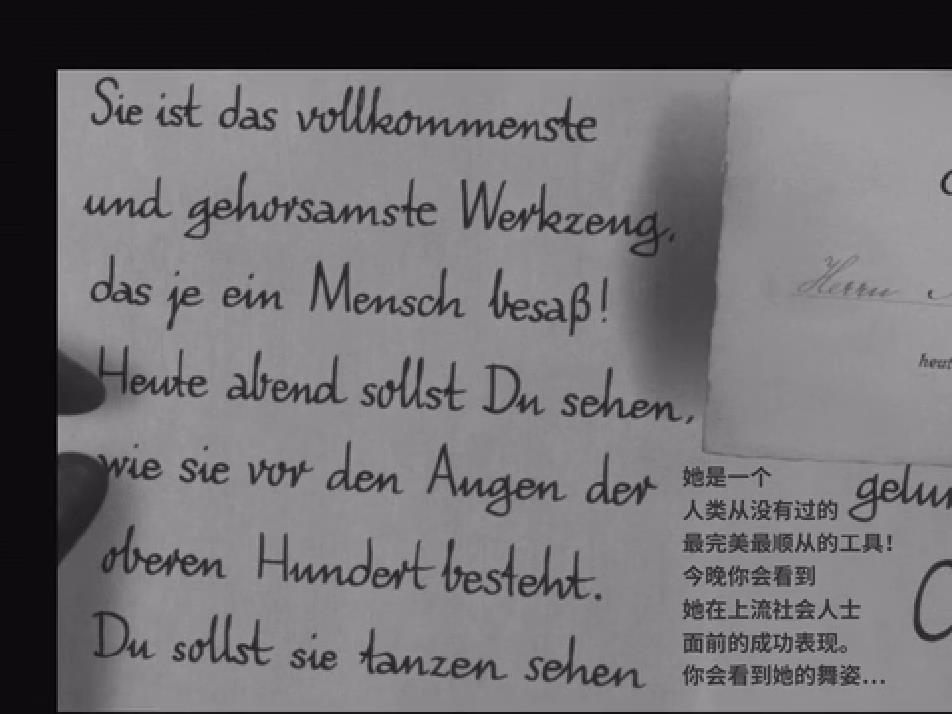 Sie ist das vollkommenste
und gehorsamste Werkzeug,
das je ein Mensch besaß!
Heute abend sollst Du sehen,
wie sie vor den Augen der
oberen Hundert besteht.
Du sollst sie tanzen sehen
Herrn
她是一个
人类从没有过的
最完美最顺从的工具!
今晚你会看到
她在上流社会人士
面前的成功表现。
你会看到她的舞姿...